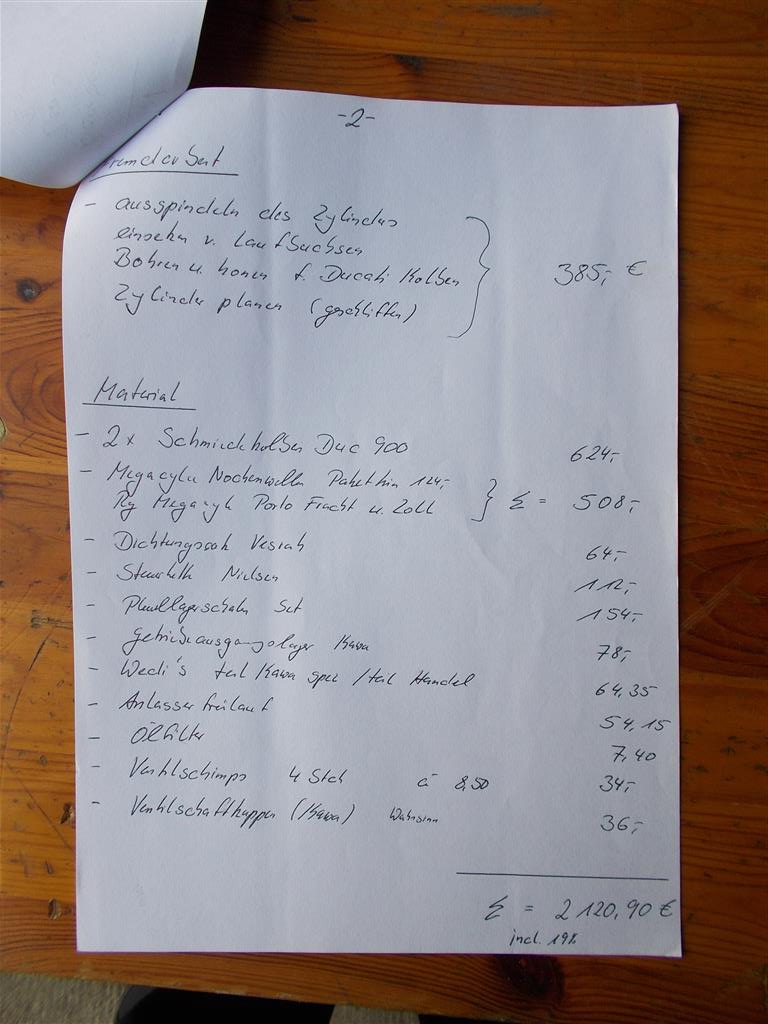 -2-
Fremdarbeit
- ausspindeln des Zylinders
einsetzen v. Laufbuchsen
Bohren u. honen f. Ducati Kolben
Zylinder planen (geschliffen)
385,- €
Material
- 2x Schmiedekolben Duc 900 624,-
- Megacycle Nockenwellen Paket hin 124,-
Rg Megacycle Porto Fracht u. Zoll } Σ = 508,-
- Dichtungssatz Vesrah 64,-
- Steuerkette Nielsen 112,-
- Pleullagerschalen Set 154,-
- Getriebeausgangslager Kawa 78,-
- Wedi's teil Kawa spez / teil Handel 64,35
- Anlasserfreilauf 54,15
- Ölfilter 7,40
- Ventilschimps 4 Stck à 8,50 34,-
- Ventilschaftkappen (Kawa) Wahnsinn 36,-
Σ = 2120,90 €
incl. 19%